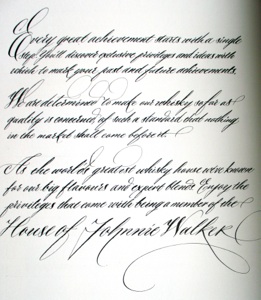 Every great achievement starts with a single
step. You'll discover exclusive privileges and ideas with
which to mark your past and future achievements.
We are determined to make our whisky so far as
quality is concerned of such a standard that nothing
in the market shall come before it.
As the world's greatest whisky house were known
for our big flavours and expert blends. Enjoy the
privileges that come with being a member of the
House of Johnnie Walker